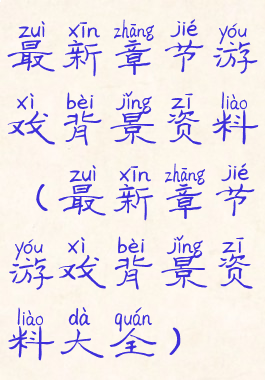 zuì xīn zhāng jié yóu
最新章节游
xì bèi jǐng zī liào
戏背景资料
zuì xīn zhāng jié
(最新章节
yóu xì bèi jǐng zī
游戏背景资
liào dà quán
料大全)